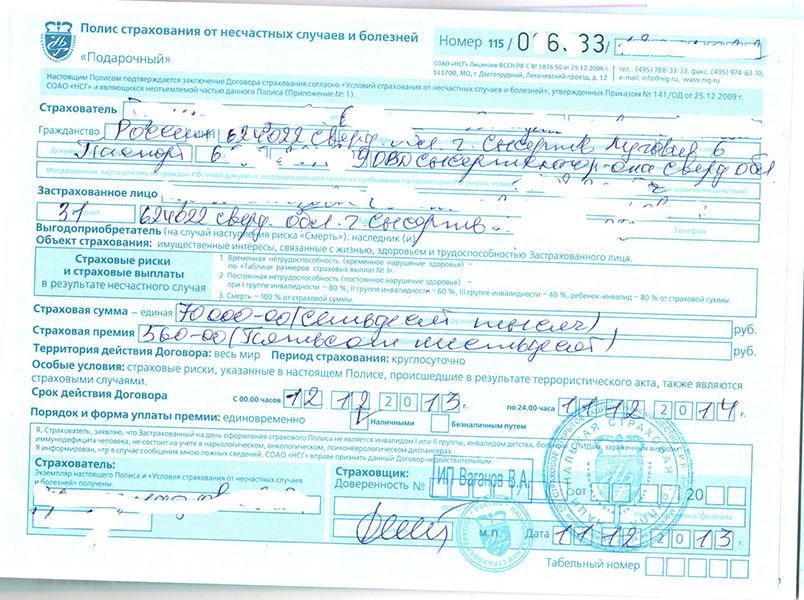 Полис страхования от несчастных случаев и болезней
«Подарочный»
Номер 115 / 0 6. 33 /
СОАО «НСГ» Лицензия ФССН РФ С № 1826 50 от 25.12.2006 г.
141700, МО, г. Долгопрудный, Лихачевский проезд, д. 12
тел.: (495) 788-33-33, факс: (495) 974-63-10,
e-mail: info@nig.ru, www.nig.ru
Настоящим Полисом подтверждается заключение Договора страхования согласно «Условий страхования от несчастных случаев и болезней», утвержденных Приказом № 141/ОД от 25.12.2009 г.
СОАО «НСГ» и являющихся неотъемлемой частью данного Полиса (Приложение № 1).
Страхователь
Гражданство Россиянин 624022 сверд. обл. г. Сысерть Луговая 6
Паспорт 6 ОВД сверд обл.
Застрахованное лицо
31 624022 сверд. обл. г. Сысерть
Телефон
Выгодоприобретатель (на случай наступления риска «Смерть»): наследник (и)
Объект страхования: имущественные интересы, связанные с жизнью, здоровьем и трудоспособностью Застрахованного лица.
Страховые риски
и страховые выплаты
в результате несчастного случая
1. Временная нетрудоспособность (временное нарушение здоровья) –
по «Таблице размеров страховых выплат № 1».
2. Постоянная нетрудоспособность (постоянное нарушение здоровья) –
при I группе инвалидности – 80 %, II группе инвалидности – 60 %, III группе инвалидности – 40 %, ребенок-инвалид – 80 % от страховой суммы.
3. Смерть – 100 % от страховой суммы.
Страховая сумма – единая 70000-00 (семьдесят тысяч) руб.
Страховая премия 560-00 (Пятьсот шестьдесят) руб.
Территория действия Договора: весь мир Период страхования: круглосуточно
Особые условия: страховые риски, указанные в настоящем Полисе, происшедшие в результате террористического акта, также являются
страховыми случаями.
Срок действия Договора с 00.00 часов 12 12 2013 г. по 24.00 часа 11 12 2014 г.
Порядок и форма уплаты премии: единовременно Наличными Безналичным путем
Я, Страхователь, заявляю, что Застрахованный на день оформления страхового Полиса не является инвалидом I или II группы, инвалидом детства, СПИДом, зараженным вирусом
иммунодефицита человека, не состоит на учете в наркологическом, онкологическом, психоневрологическом диспансерах.
Я информирован, что в случае сообщения мною ложных сведений, СОАО «НСГ» вправе признать данный Договор недействительным.
Страхователь:
Экземпляр настоящего Полиса и «Условия страхования от несчастных случаев
и болезней» получены.
Страховщик:
Доверенность № ИП Ваганов В.А. от 20
м.п. Дата 11 12 2013 г.
Табельный номер